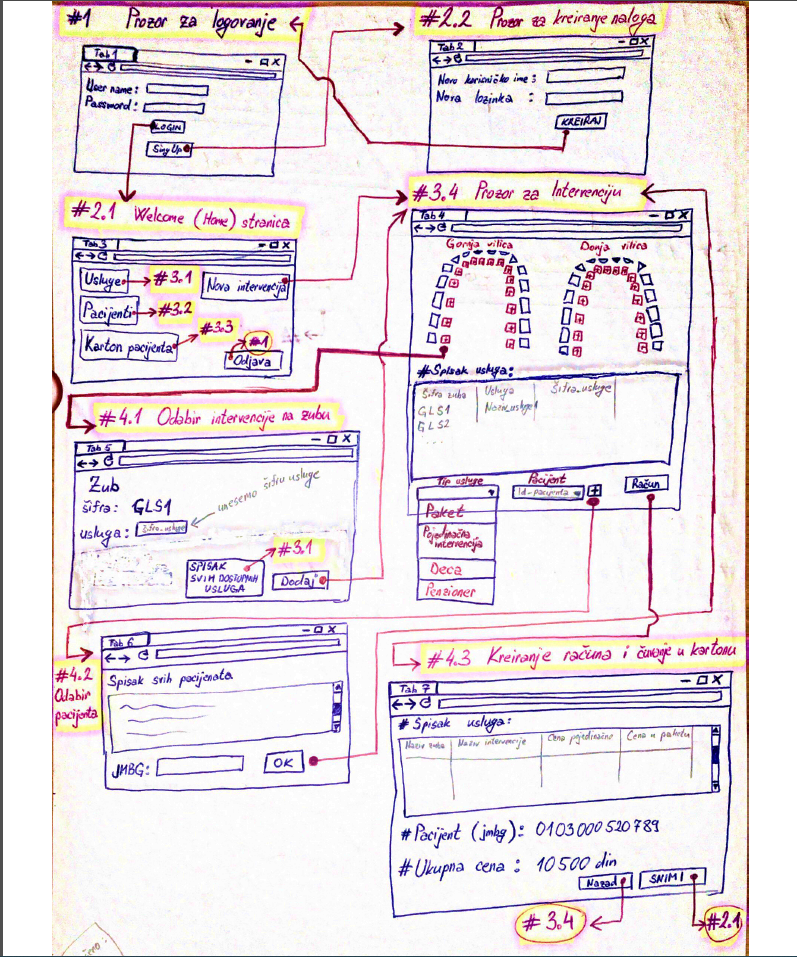 #1 Prozor za logovanje
Tab1
User name:
Password:
LOGIN
SingUp
#2.2 Prozor za kreiranje naloga
Tab2
Novo korisničko ime:
Nova lozinka :
KREIRAJ
#2.1 Welcome (Home) stranica
Tab3
Usluge
#3.1
Nova intervencija
Pacijenti
#3.2
#3.3
Karton pacijenta
#1
Odjava
#3.4 Prozor za Intervenciju
Tab4
Gornja vilica
Donja vilica
#Spisak usluga:
Šifra zuba
Usluga
Šifra_usluge
GLS1
Naziv_usluge1
GLS2
....
Tip usluge
Pacijent
Id-pacijenta
+
Račun
Paket
Pojedinačna
intervencija
Deca
Penzioner
#4.1 Odabir intervencije na zubu
Tab 5
Zub
šifra: GLS1
unesemo šifru usluge
usluga: Šifra_usluge
#3.1
SPISAK
SVIH DOSTUPNIH
USLUGA
Dodaj
#4.2
Odabir
pacijenta
Tab 6
Spisak svih pacijenata
JMBG:
OK
#4.3 Kreiranje računa i čuvanje u kartonu
Tab 7
# Spisak usluga:
Naziv zuba
Naziv intervencije
Cena pojedinačno
Cena u paketu
#Pacijent (jmbg): 0103000520789
#Ukupna cena : 10500 din
Nazad
SNIMI
#3.4
#2.1